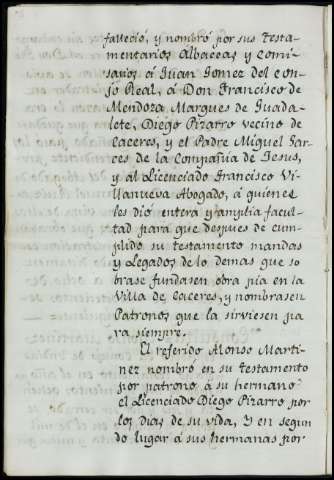 faveció, y nombró por sus Testa-
mentarios Albaceas y Comi-
sarios á Juan Gomez del con-
sjo Real, á Don Francisco de
Mendoza Marques de Guada-
lete, Diego Pizarro vecino de
Caceres, y el Padre Miguel Gar-
ces de la Compañia de Jesus,
y al Licenciado Francisco Vi-
llanueva Abogado, á quienes
les dió entera y amplia facul-
tad para que despues de cum-
plido su testamento mandas
y Legados de lo demas que so
brase fundasen obra pia en la
Villa de Caceres, y nombrasen
Patronos que la sirviesen pa
ra siempre.
El referido Alonso Marti-
nez nombró en su testamento
por patrono á su hermano
el Licenciado Diego Pizarro por
los dias de su vida, Y en segun
do lugar á sus hermanas por